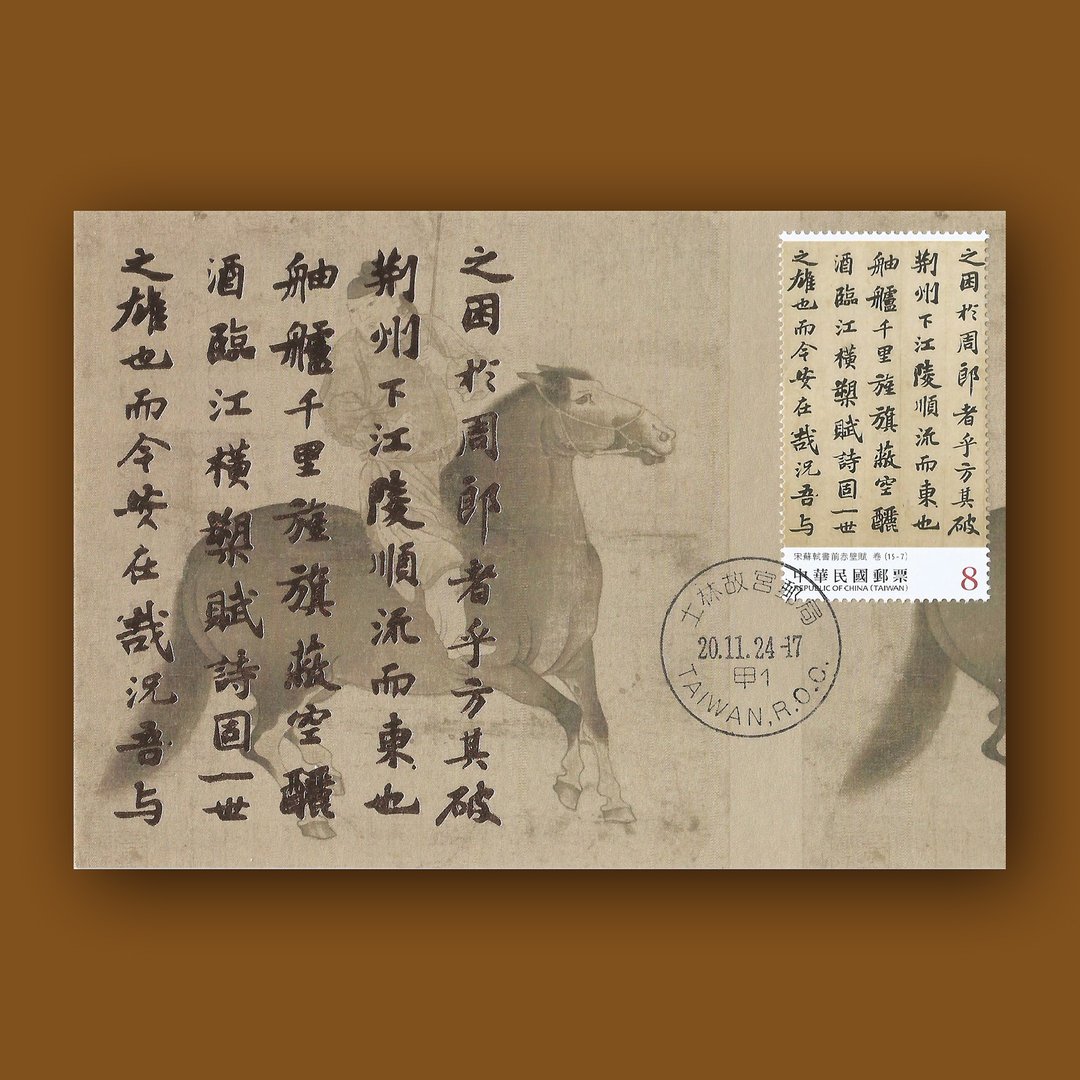 之困於周郎者乎方其破
荆州下江陵順流而東也
舳艫千里旌旗蔽空釃
酒臨江橫槊賦詩固一世
之雄也而今安在哉況吾与
之困於周郎者乎方其破
荆州下江陵順流而東也
舳艫千里旌旗蔽空釃
酒臨江橫槊賦詩固一世
之雄也而今安在哉況吾与
宋蘇軾書前赤壁賦 卷 (15-7)
中華民國郵票
REPUBLIC OF CHINA (TAIWAN)
8
士林故宮郵局
20.11.24-17
甲1
TAIWAN, R.O.C.